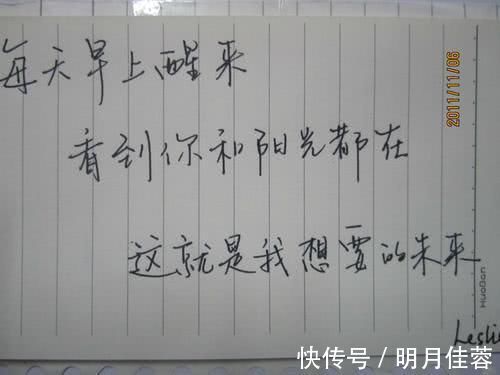 每天早上醒来
2011/11/06
看到你和阳光都在
这就是我想要的未来
HuaDan
Leslie
快传号 / 明月佳蓉